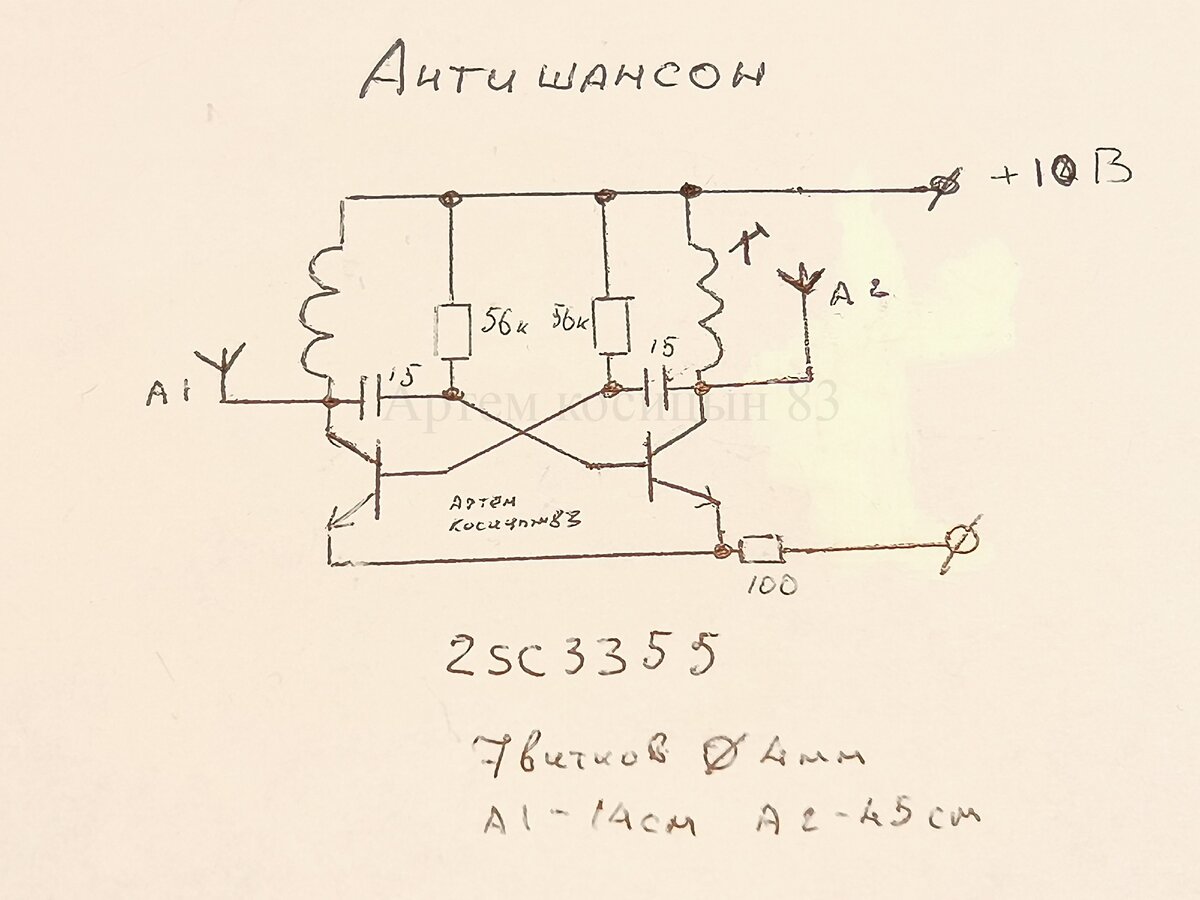 Антишансон
+10В
А2
56к 56к
15
15
А1
Артем косицын 83
Артём
косицын83
100
2SC3355
7витков Ø 4мм
А1-14см А2-45см